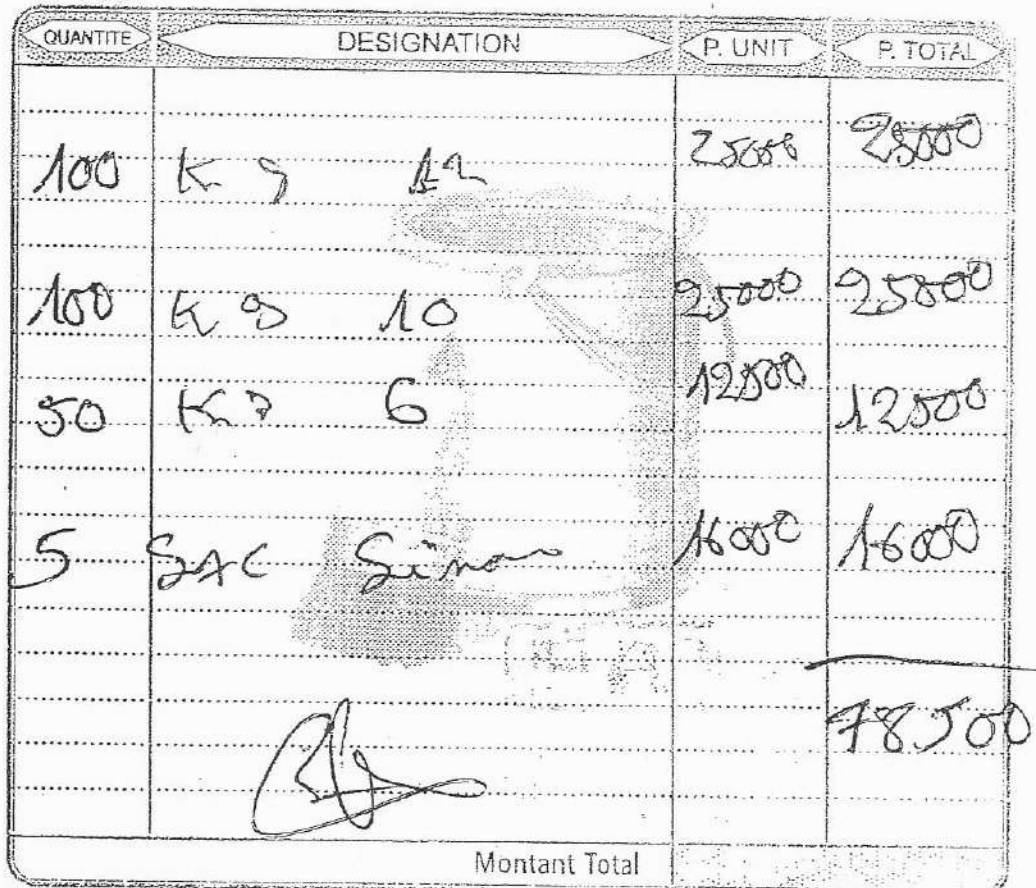 QUANTITE DESIGNATION P. UNIT P. TOTAL
100 Kg 12 25000 25000
100 Kg 10 25000 25000
50 Kg 6 12500 12500
5 SAC 16000 16000
78500
Montant Total